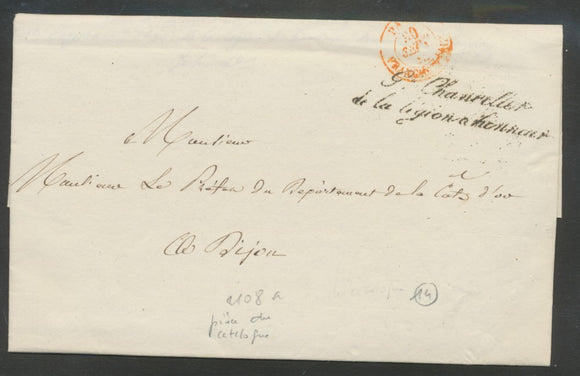 20
SEPT
Gd Chancelier
de la légion d'honneur
a Monsieur
Monsieur Le Préfet du Département de la Côte d'or
A Dijon
2108 a
pièce du
catalogue
14